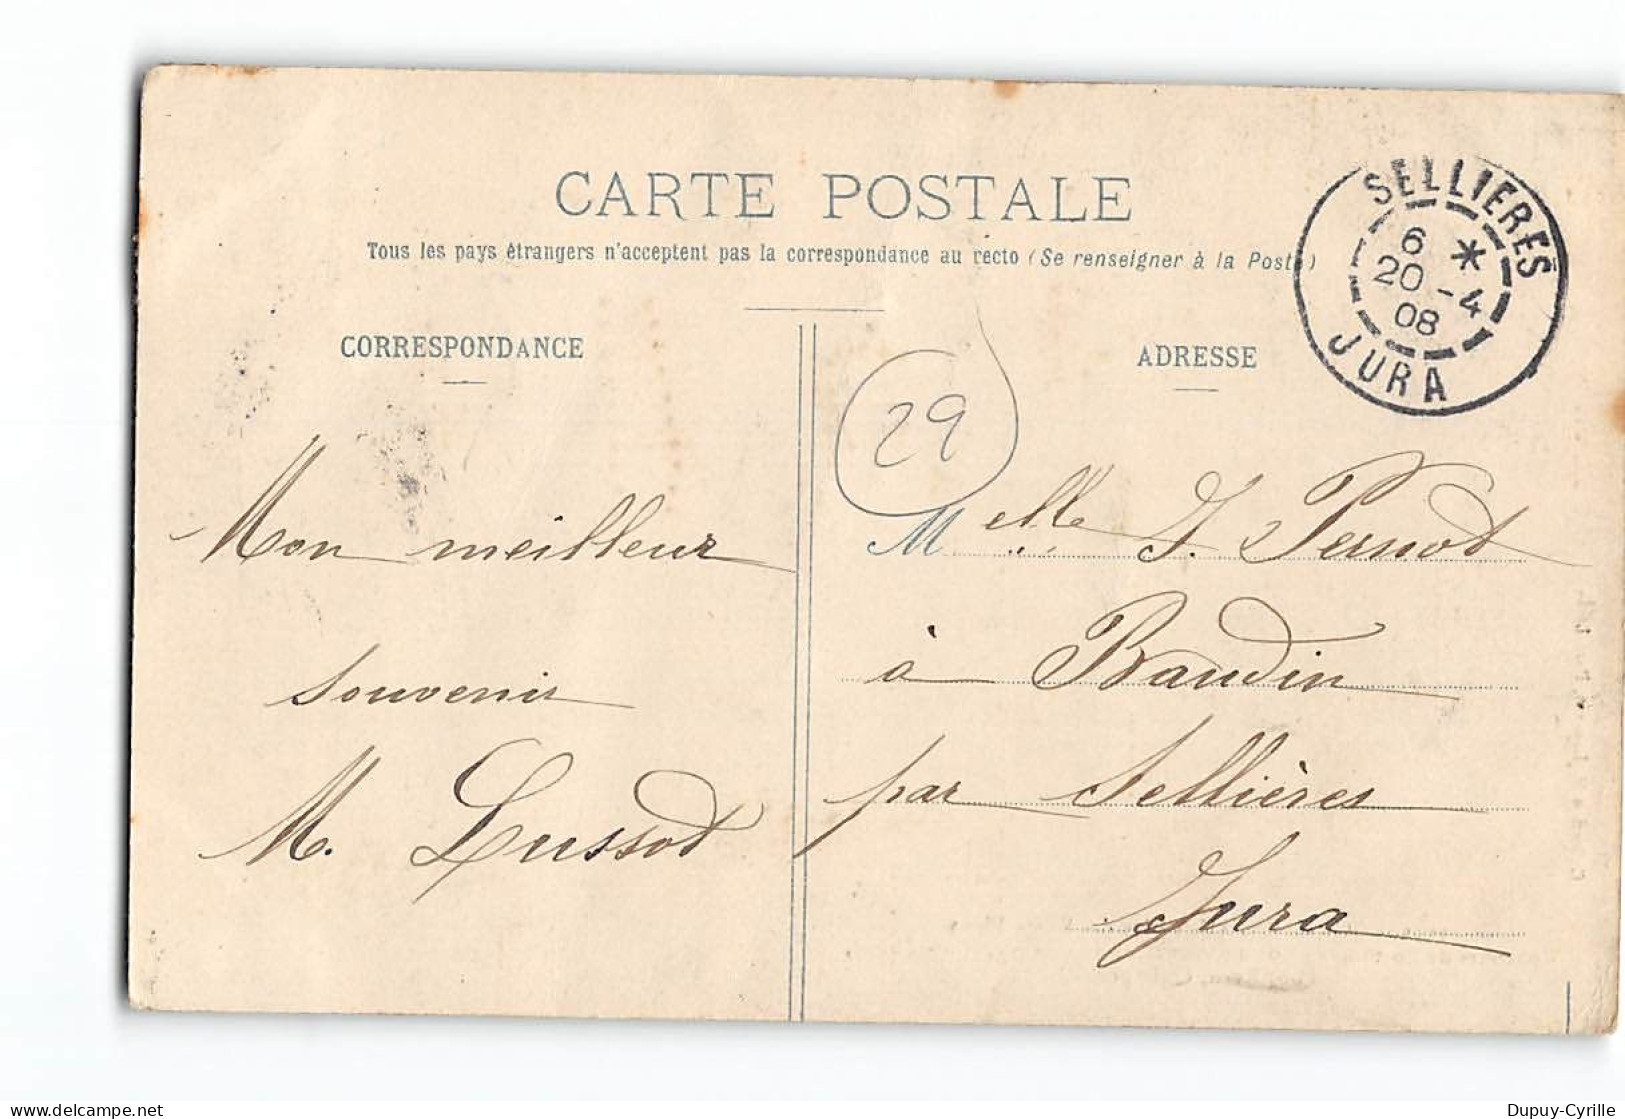 CARTE POSTALE
Tous les pays étrangers n'acceptent pas la correspondance au recto (Se renseigner à la Poste)
SELLIERES
6 *
20 - 4
08
JURA
CORRESPONDANCE
ADRESSE
29
Mon meilleur
souvenir
M. Lussot
Melle J. Pernot
à Baudin
par Sellières
Jura
Dupuy-Cyrille